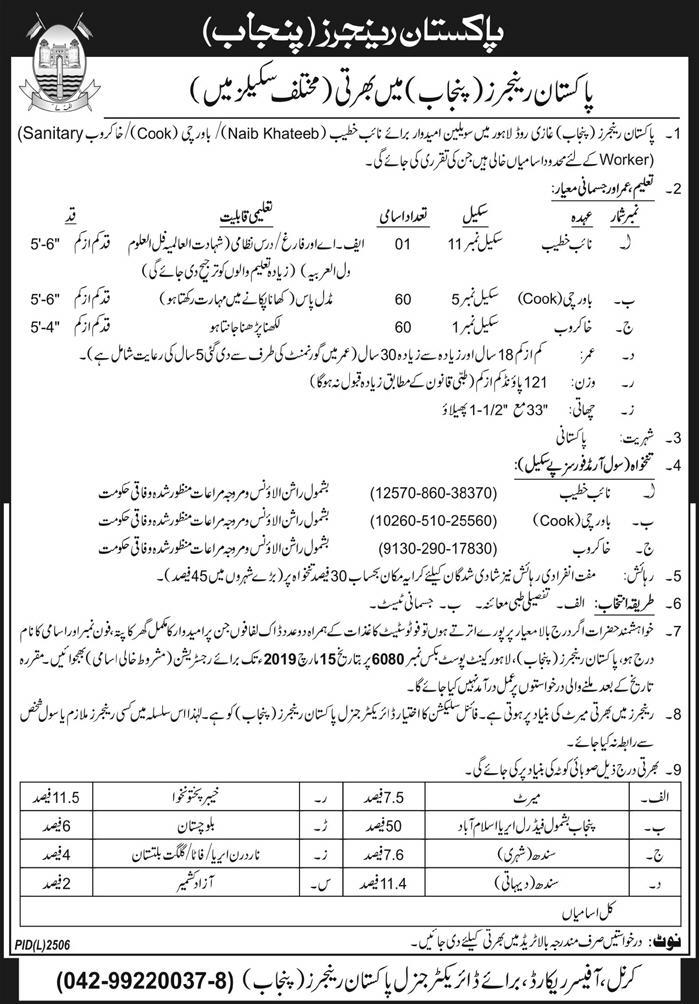 پاکستان رینجرز (پنجاب)
پاکستان رینجرز (پنجاب) میں بھرتی (مختلف سکیلز میں)
1۔ پاکستان رینجرز (پنجاب) غازی روڈ لاہور میں سویلین امیدوار برائے نائب خطیب (Naib Khateeb)/ باورچی (Cook)/ خاکروب (Sanitary
Worker) کے لئے محدود اسامیاں خالی ہیں جن کی تقرری کی جائے گی۔
2۔ تعلیم، عمر اور جسمانی معیار:
نمبر شمار عہدہ سکیل تعداد اسامی تعلیمی قابلیت قد
ا۔ نائب خطیب سکیل نمبر 11 01 ایف۔اے اور فارغ/ درس نظامی (شہادت العالمیہ فل العلوم قد کم از کم 5'-6"
دل العربیہ) (زیادہ تعلیم والوں کو ترجیح دی جائے گی)
ب۔ باورچی (Cook) سکیل نمبر 5 60 مڈل پاس (کھانا پکانے میں مہارت رکھتا ہو) قد کم از کم 5'-6"
ج۔ خاکروب سکیل نمبر 1 60 لکھنا پڑھنا جانتا ہو قد کم از کم 5'-4"
د۔ عمر: کم از کم 18 سال اور زیادہ سے زیادہ 30 سال (عمر میں گورنمنٹ کی طرف سے دی گئی 5 سال کی رعایت شامل ہے)۔
ر۔ وزن: 121 پاؤنڈ کم از کم (طبّی قانون کے مطابق زیادہ قبول نہ ہوگا)
ز۔ چھاتی: 33" مع 1-1/2" پھیلاؤ
3۔ شہریت: پاکستانی
4۔ تنخواہ (سول آرمڈ فورسز پے سکیل):
ا۔ نائب خطیب (12570-860-38370) بشمول راشن الاؤنس و مروجہ مراعات منظور شدہ وفاقی حکومت
ب۔ باورچی (Cook) (10260-510-25560) بشمول راشن الاؤنس و مروجہ مراعات منظور شدہ وفاقی حکومت
ج۔ خاکروب (9130-290-17830) بشمول راشن الاؤنس و مروجہ مراعات منظور شدہ وفاقی حکومت
5۔ رہائش: مفت انفرادی رہائش نیز شادی شدگان کیلئے کرایہ مکان بحساب 30 فیصد تنخواہ پر (بڑے شہروں میں 45 فیصد)۔
6۔ طریقہ انتخاب: الف۔ تفصیلی طبی معائنہ۔ ب۔ جسمانی ٹیسٹ۔
7۔ خواہشمند حضرات اگر درج بالا معیار پر پورے اترتے ہوں تو فوٹوسٹیٹ کاغذات کے ہمراہ دو عدد ڈاک لفافوں جن پر امیدوار کا مکمل گھر کا پتہ، فون نمبر اور اسامی کا نام
درج ہو، پاکستان رینجرز (پنجاب)، لاہور کینٹ پوسٹ بکس نمبر 6080 پر بتاریخ 15 مارچ 2019ء تک برائے رجسٹریشن (مشروط خالی اسامی) بھجوائیں۔ مقررہ
تاریخ کے بعد ملنے والی درخواستوں پر عمل درآمد نہیں کیا جائے گا۔
8۔ رینجرز میں بھرتی میرٹ کی بنیاد پر ہوتی ہے۔ فائنل سلیکشن کا اختیار ڈائریکٹر جنرل پاکستان رینجرز (پنجاب) کو ہے۔ لہٰذا اس سلسلہ میں کسی رینجرز ملازم یا سول شخص
سے رابطہ نہ کیا جائے۔
9۔ بھرتی درج ذیل صوبائی کوٹہ کی بنیاد پر کی جائے گی۔
الف۔ میرٹ 7.5 فیصد ر۔ خیبر پختونخوا 11.5 فیصد
ب۔ پنجاب بشمول فیڈرل ایریا اسلام آباد 50 فیصد ڑ۔ بلوچستان 6 فیصد
ج۔ سندھ (شہری) 7.6 فیصد ز۔ ناردرن ایریا/ فاٹا/ گلگت بلتستان 4 فیصد
د۔ سندھ (دیہاتی) 11.4 فیصد س۔ آزاد کشمیر 2 فیصد
کل اسامیاں
نوٹ: درخواستیں صرف مندرجہ بالا ٹریڈ میں بھرتی کیلئے دی جائیں۔
PID(L)2506
کرنل، آفیسر ریکارڈ، برائے ڈائریکٹر جنرل پاکستان رینجرز (پنجاب) (042-99220037-8)